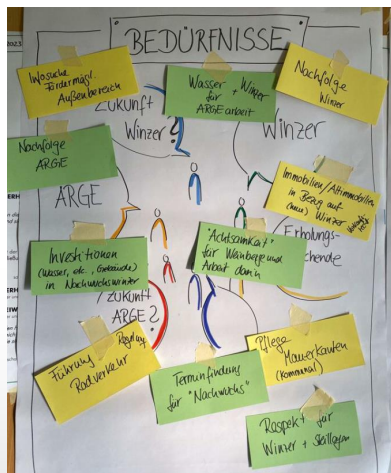 BEDÜRFNISSE
Infosuche
Fördermögl.
Außenbereich
Wasser + Winzer
für
ARGEarbeit
Nachfolge
Winzer
Zukunft
Winzer
Winzer
Nachfolge
ARGE
ARGE
Immobilien/Altimmobilien
in Bezug auf
(neu) Winzer
Erholungs-
chende
Investitionen
(Wasser, etc., Gebäude)
in Nachwuchswinzer
"Achtsamkeit"
für Weinberge und
Arbeit darin
Zukunft
ARGE?
Führung
Radverkehr
Terminfindung
für "Nachwuchs"
Pflege
Mauerkanten
(kommunal)
Respekt für
Winzer +